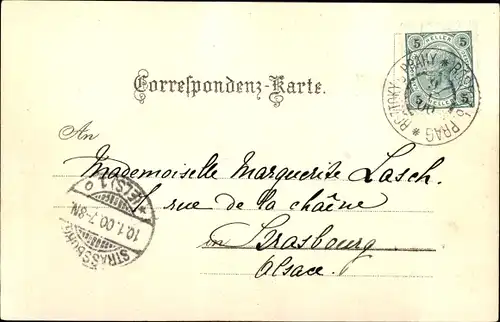 5 HELLER 5
5 5
ROZTOKY U PRAHY * ROZTOK B. PRAG *
Correspondenz-Karte.
An
Mademoiselle Marguerite Lasch.
1 rue de la chaîne
in Strasbourg
Alsace.
STRASSBURG
10.1.00.7-8N.
* (ELS) 1 o